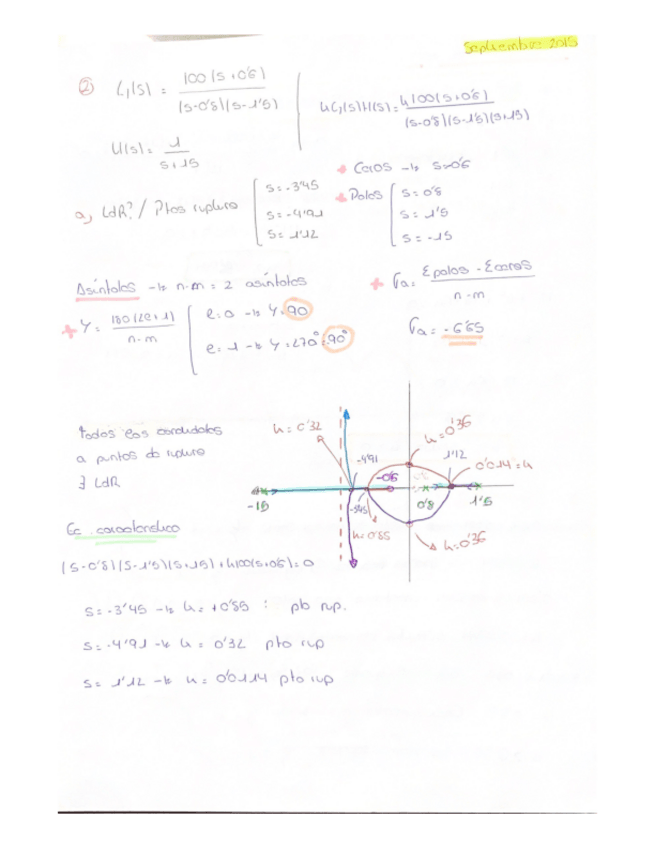 Septiembre 2015
② G(s) = 100(s+0'6) / (s-0'8)(s-1'5)
KG(s)H(s) = K100(s+0'6) / (s-0'8)(s-1'5)(s+15)
H(s) = 1 / s+15
+ Ceros → s=-0'6
a) LdR? / Ptos ruptura
s=-3'45
s=-4'91
s=1'12
+ Polos
s=0'8
s=1'5
s=-15
Asíntotas → n-m = 2 asíntotas
+ γ = 180(2e+1) / n-m
e=0 → γ=90
e=1 → γ=270°=-90°
+ Γa = Σpolos - Σceros / n-m
Γa = -6'65
todos los candidatos
a puntos de ruptura
∃ LdR
k=0'32
k=0'36
-4'91
-0'6
1'12
0'014=k
-15
-3'45
0'8
1'5
k=0'85
k=0'36
Ec característica
(s-0'8)(s-1'5)(s+15)+k100(s+0'6)=0
s=-3'45 → k=+0'85 : pto rup.
s=-4'91 → k=0'32 pto rup
s=1'12 → k=0'0114 pto rup